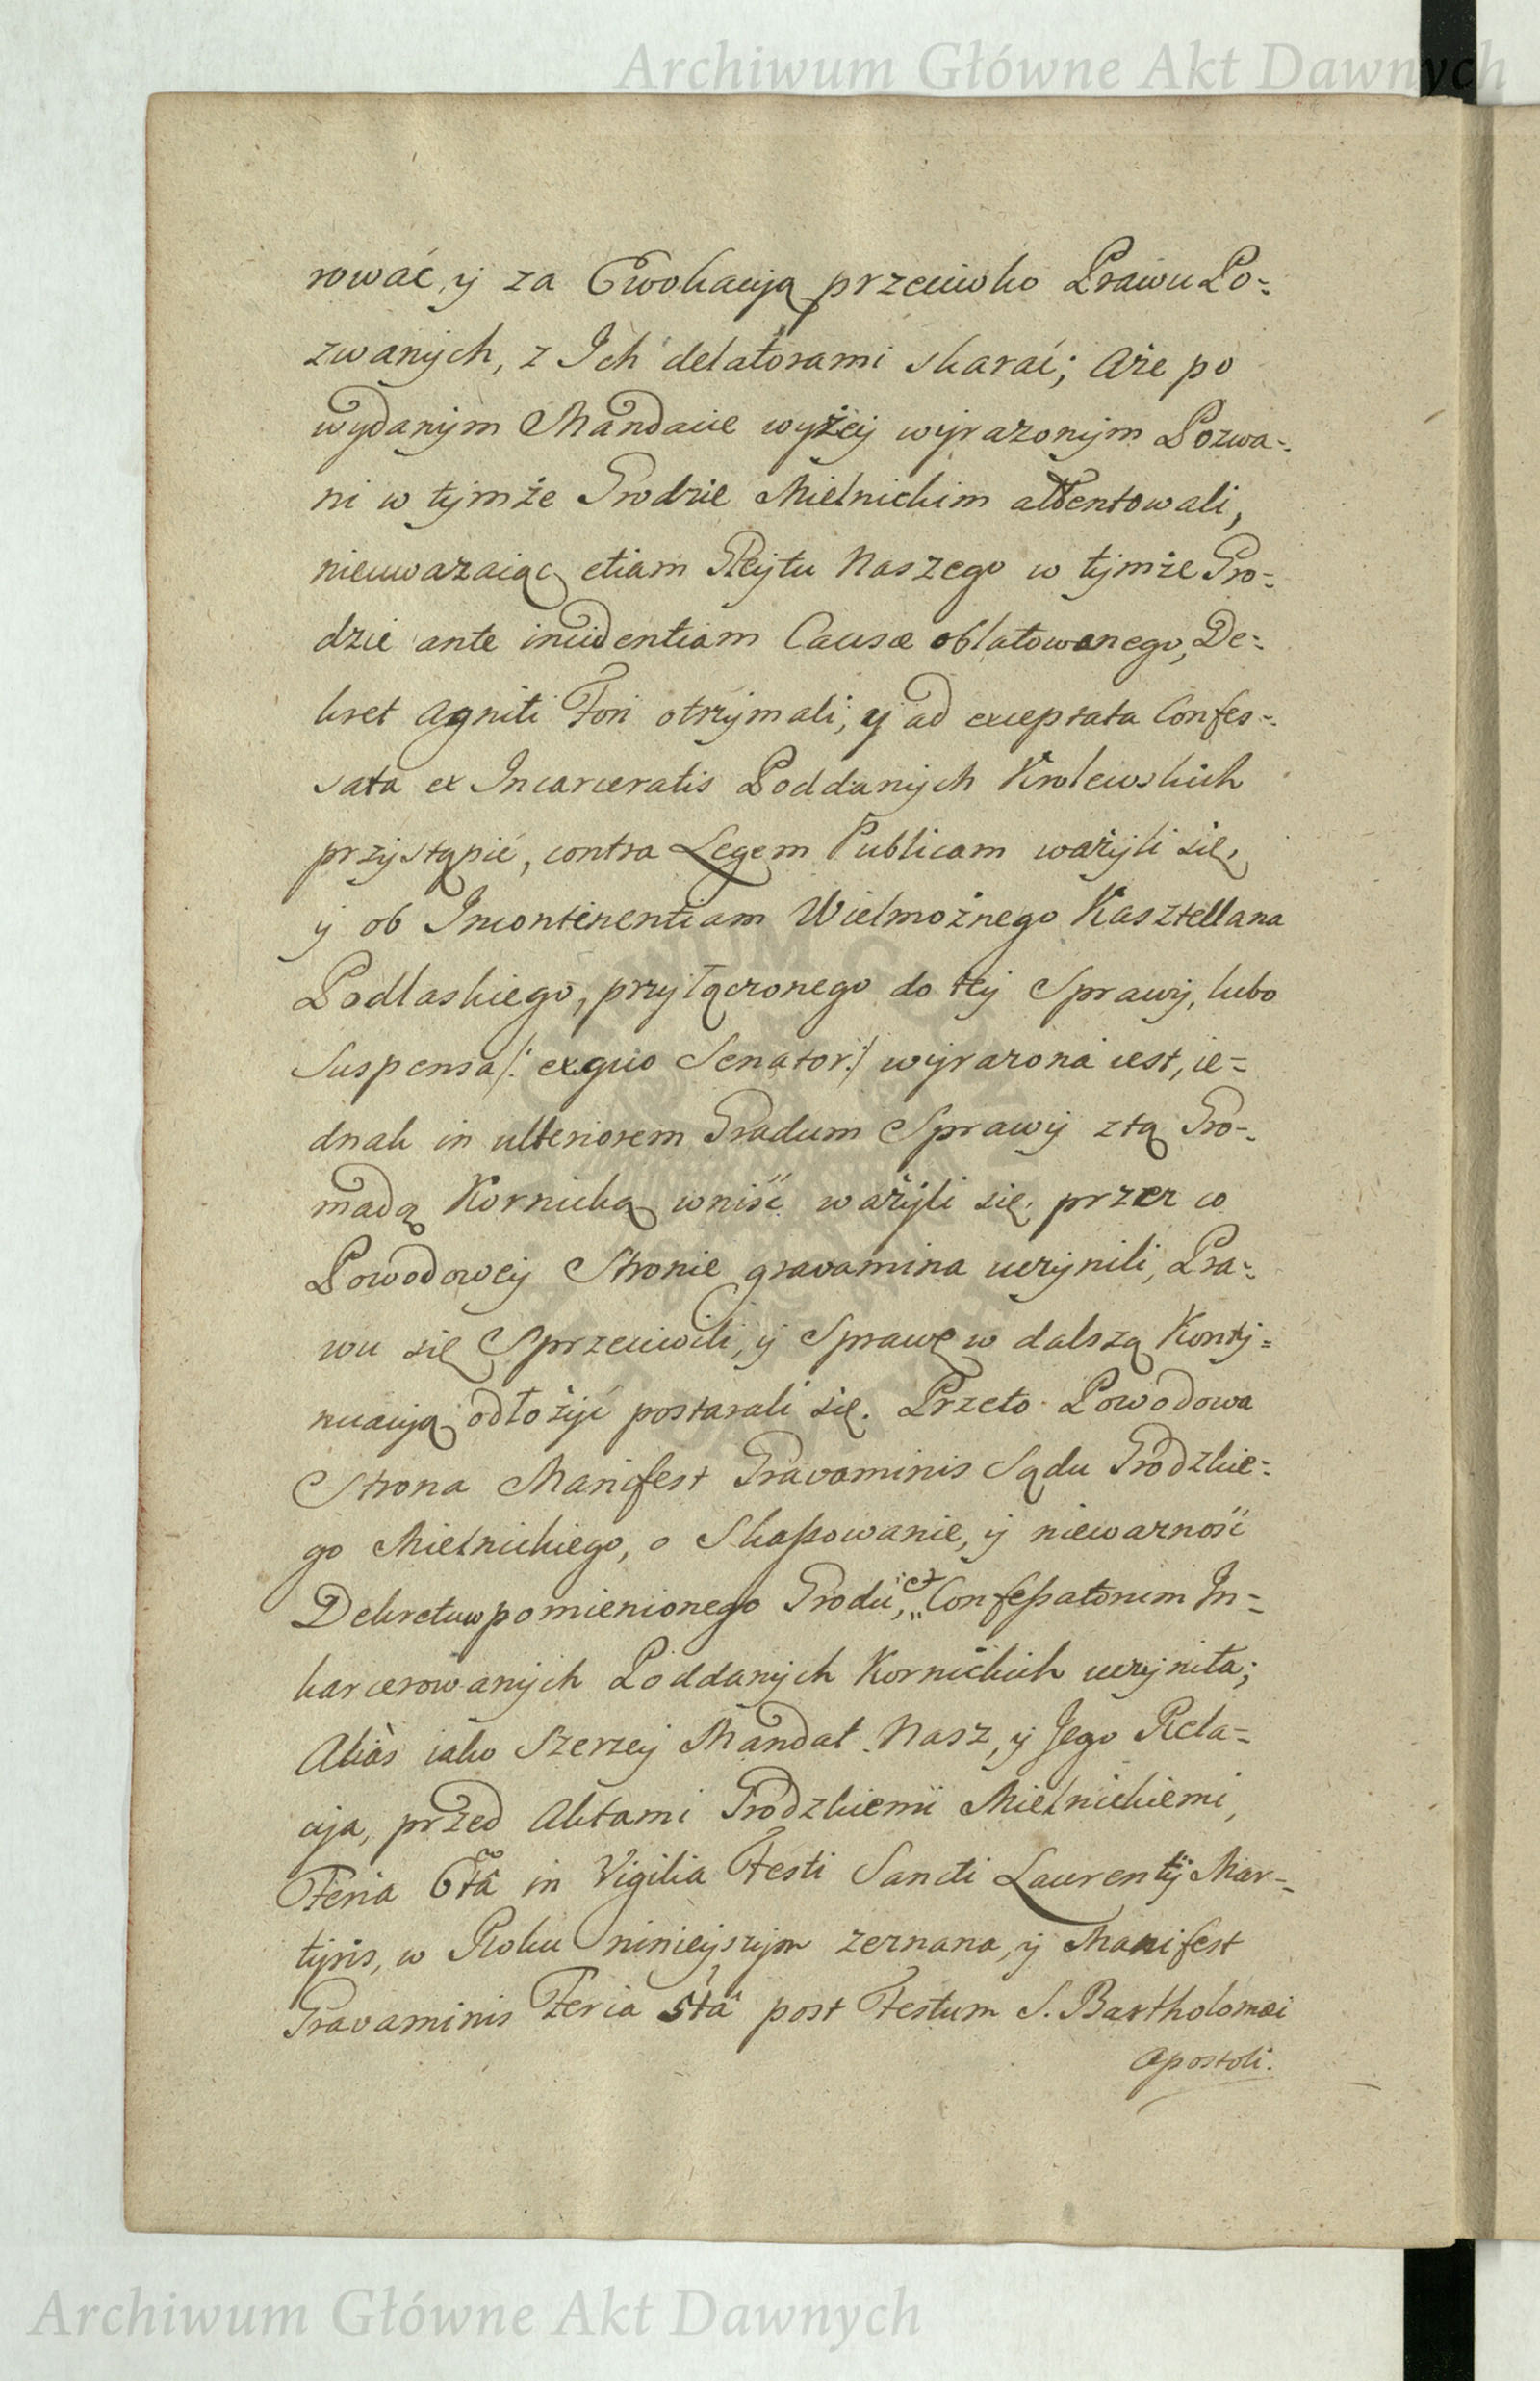 Archiwum Główne Akt Dawnych
rować, y za Ewokacyą przeciwko Prawu Po=
zwanych, z Ich delatorami skarać; Aże po
wydanym Mandacie wyżey wyrazonym Pozwa=
ni w tymże Grodzie Mielnickim attentowali,
nieuwazaiąc etiam Gleytu Naszego w tymże Gro=
dzie ante incidentiam Causæ oblatowanego, De=
kret Agniti Fori otrzymali, y ad exceptata Confes=
sata ex Incarceratis Poddanych Krolewskich
przystąpić, contra Legem Publicam ważyli się,
y ob Incontinentiam Wielmożnego Kasztellana
Podlaskiego, przyłączonego do tey Sprawy, lubo
Suspensa /: ex quo Senator :/ wyrazona iest, ie=
dnak in ulteriorem Gradum Sprawy z tą Gro=
madą Kornicką wniść ważyli się, przez co
Powodowey Stronie gravamina uczynili, Pra=
wu się Sprzeciwili, y Sprawę w dalszą Konty=
nuacyą odłożyć postarali się. Przeto Powodowa
Strona Manifest Gravaminis Sądu Grodzkie=
go Mielnickiego, o Skassowanie, y niewazność
Dekretu wpomienionego Grodu, et Confessatorum In=
karcerowanych Poddanych Kornickich uczyniła;
Aliàs iako Szerzey Mandat Nasz, y Jego Rela=
cya, przed Aktami Grodzkiemi Mielnickiemi,
Feria 6tâ in Vigilia Festi Sancti Laurentÿ Mar=
tyris, w Roku ninieyszym zeznana, y Manifest
Gravaminis Feria 5tâ post Festum S. Bartholomæi
Apostoli.
Archiwum Główne Akt Dawnych